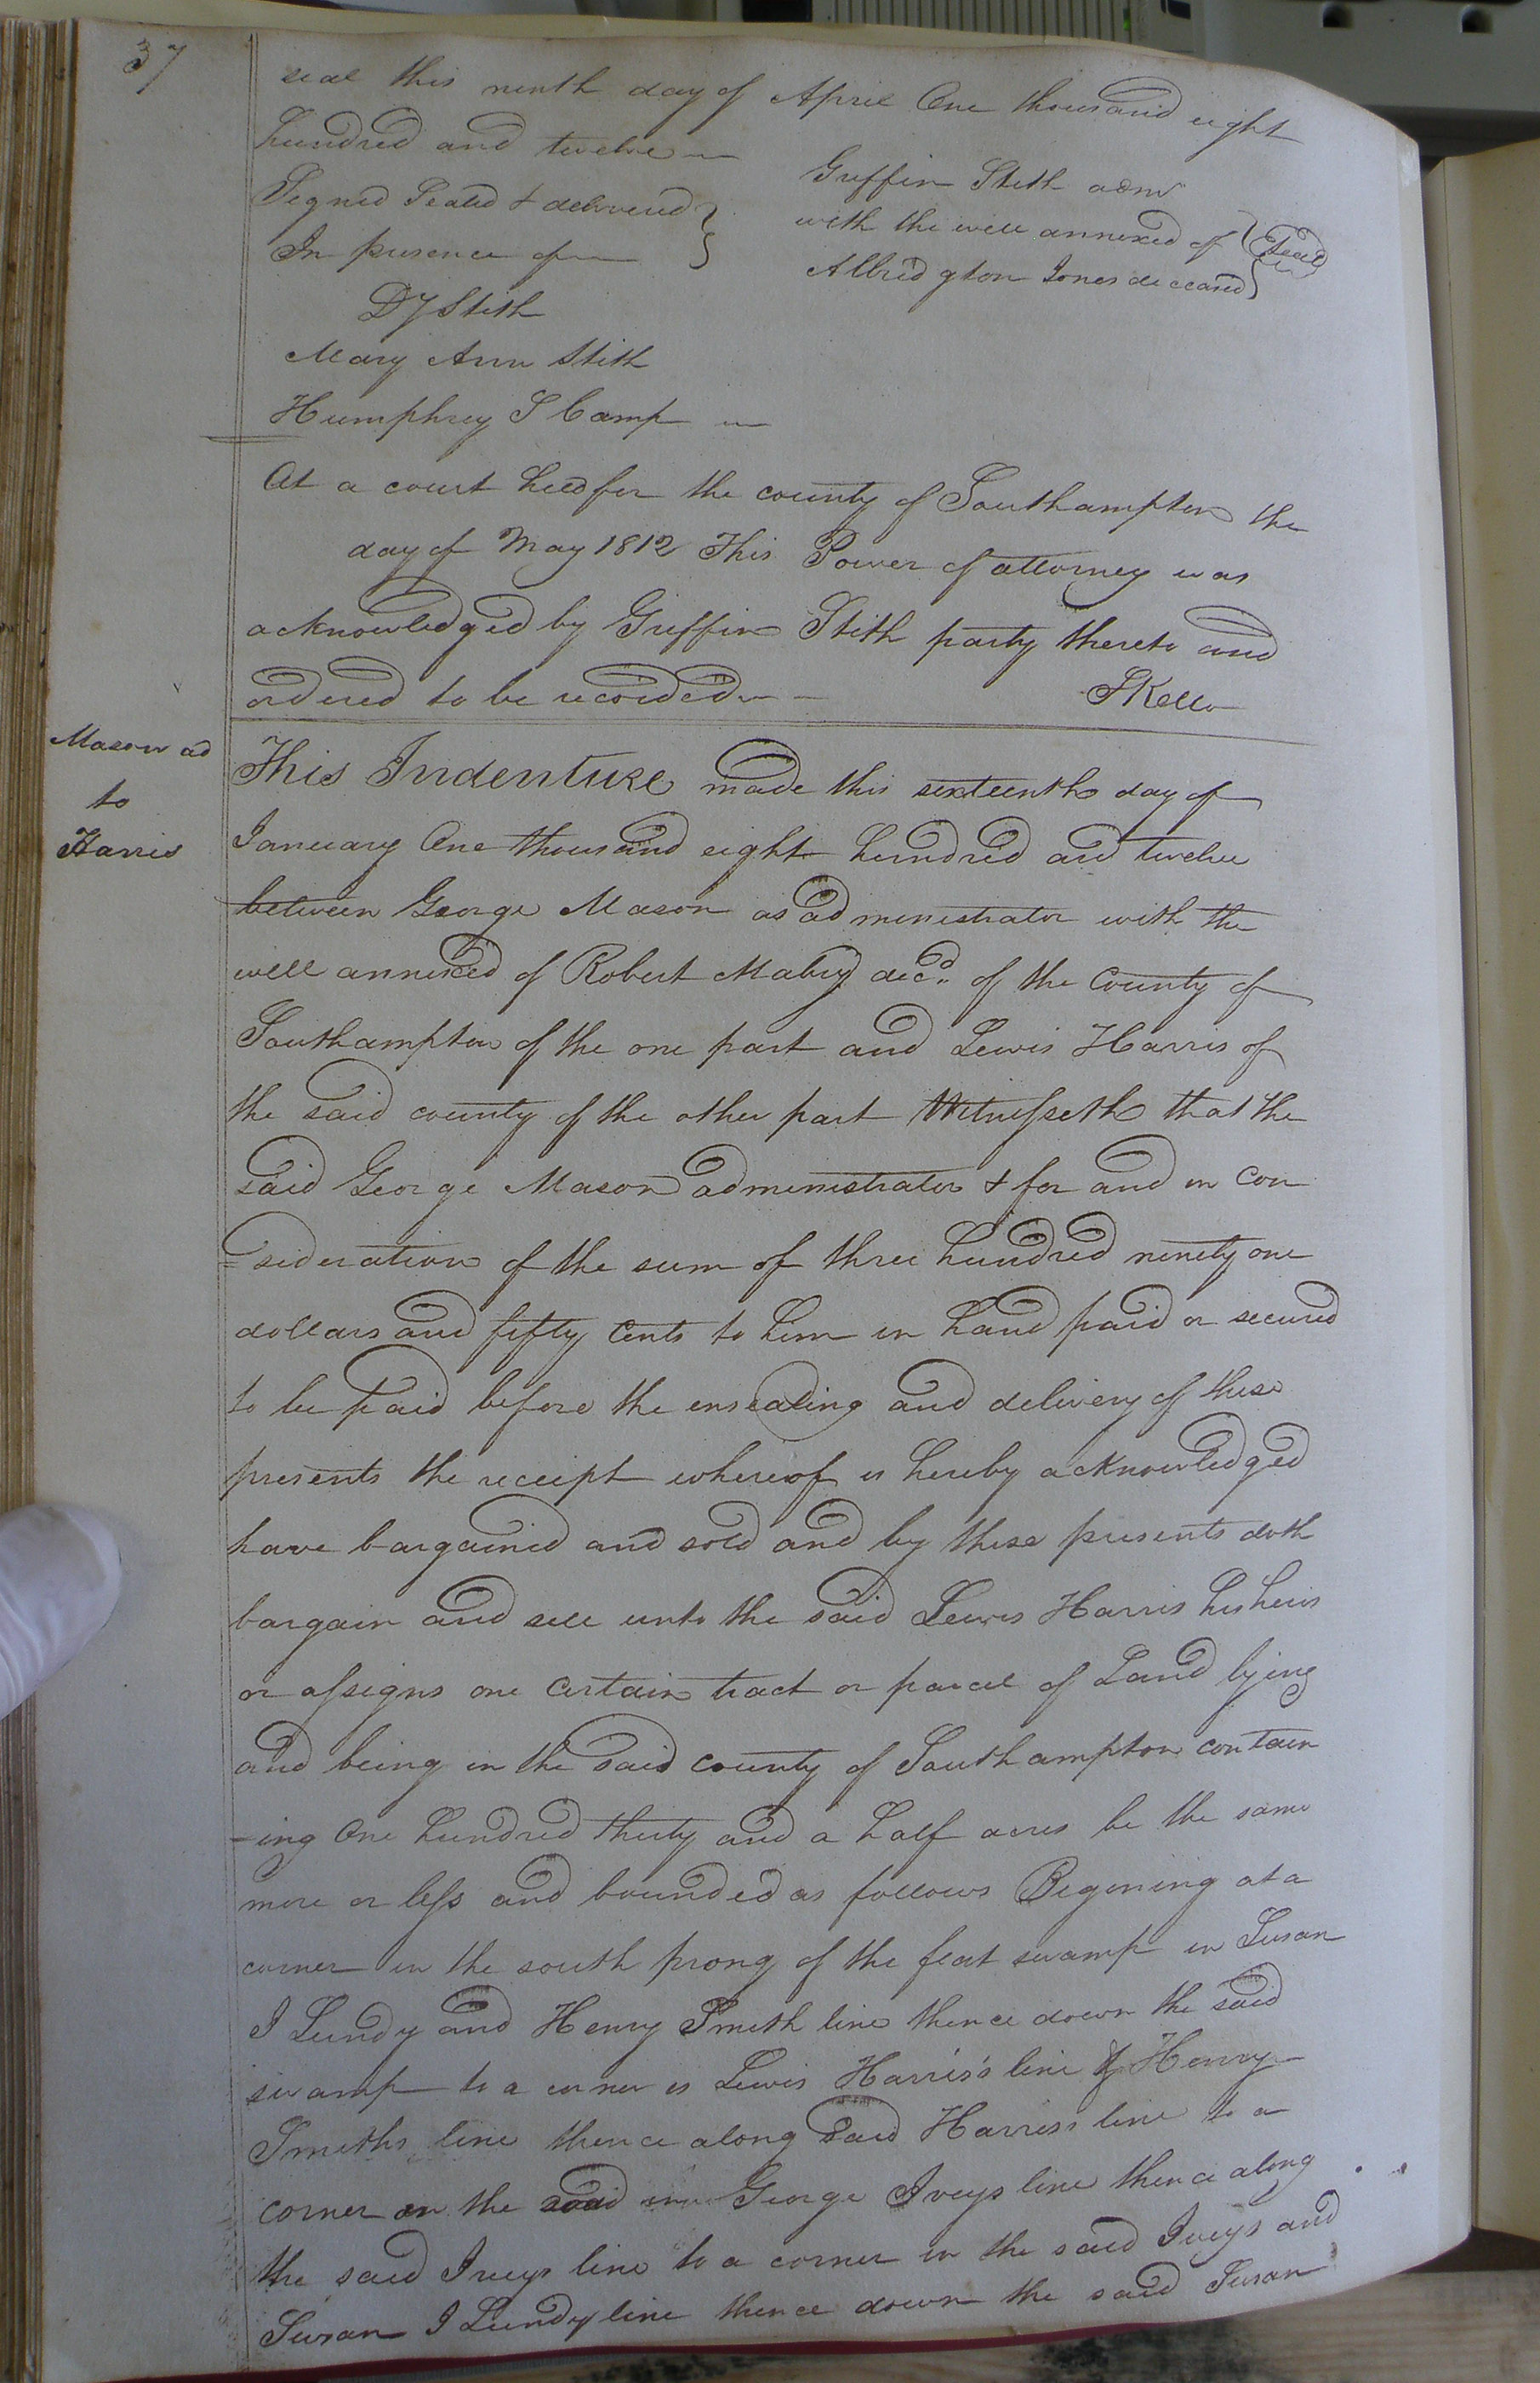 37
seal this ninth day of April One thousand eight
hundred and twelve
Signed Sealed & delivered
In presence of
Griffin Stith admr
with the will annexed of
Albridgton Jones deceased
Seal
D J Stith
Mary Ann Stith
Humphrey S Camp
At a court held for the county of Southampton the
day of May 1812 This Power of attorney was
acknowledged by Griffin Stith party thereto and
ordered to be recorded
S Kello
Mason ad
to
Harris
This Indenture made this sixteenth day of
January One thousand eight hundred and twelve
between George Mason as administrator with the
will annexed of Robert Mabry decd. of the County of
Southampton of the one part and Lewis Harris of
the said county of the other part Witnesseth that the
said George Mason administrator & for and in con
=sideration of the sum of three hundred ninety one
dollars and fifty Cents to him in hand paid or secured
to be paid before the ensealing and delivery of these
presents the receipt whereof is hereby acknowledged
have bargained and sold and by these presents doth
bargain and sell unto the said Lewis Harris his heirs
or assigns one certain tract or parcel of Land lying
and being in the said county of Southampton contain
-ing One hundred thirty and a half acres be the same
more or less and bounded as follows Begining at a
corner in the south prong of the flat swamp in Susan
J Lundy and Henry Smith line thence down the said
swamp to a corner is Lewis Harris's line & Henry
Smiths line thence along said Harriss line to a
corner on the road George Iveys line thence along
the said Iveys line to a corner in the said Iveys and
Susan J Lundy line thence down the said Susan